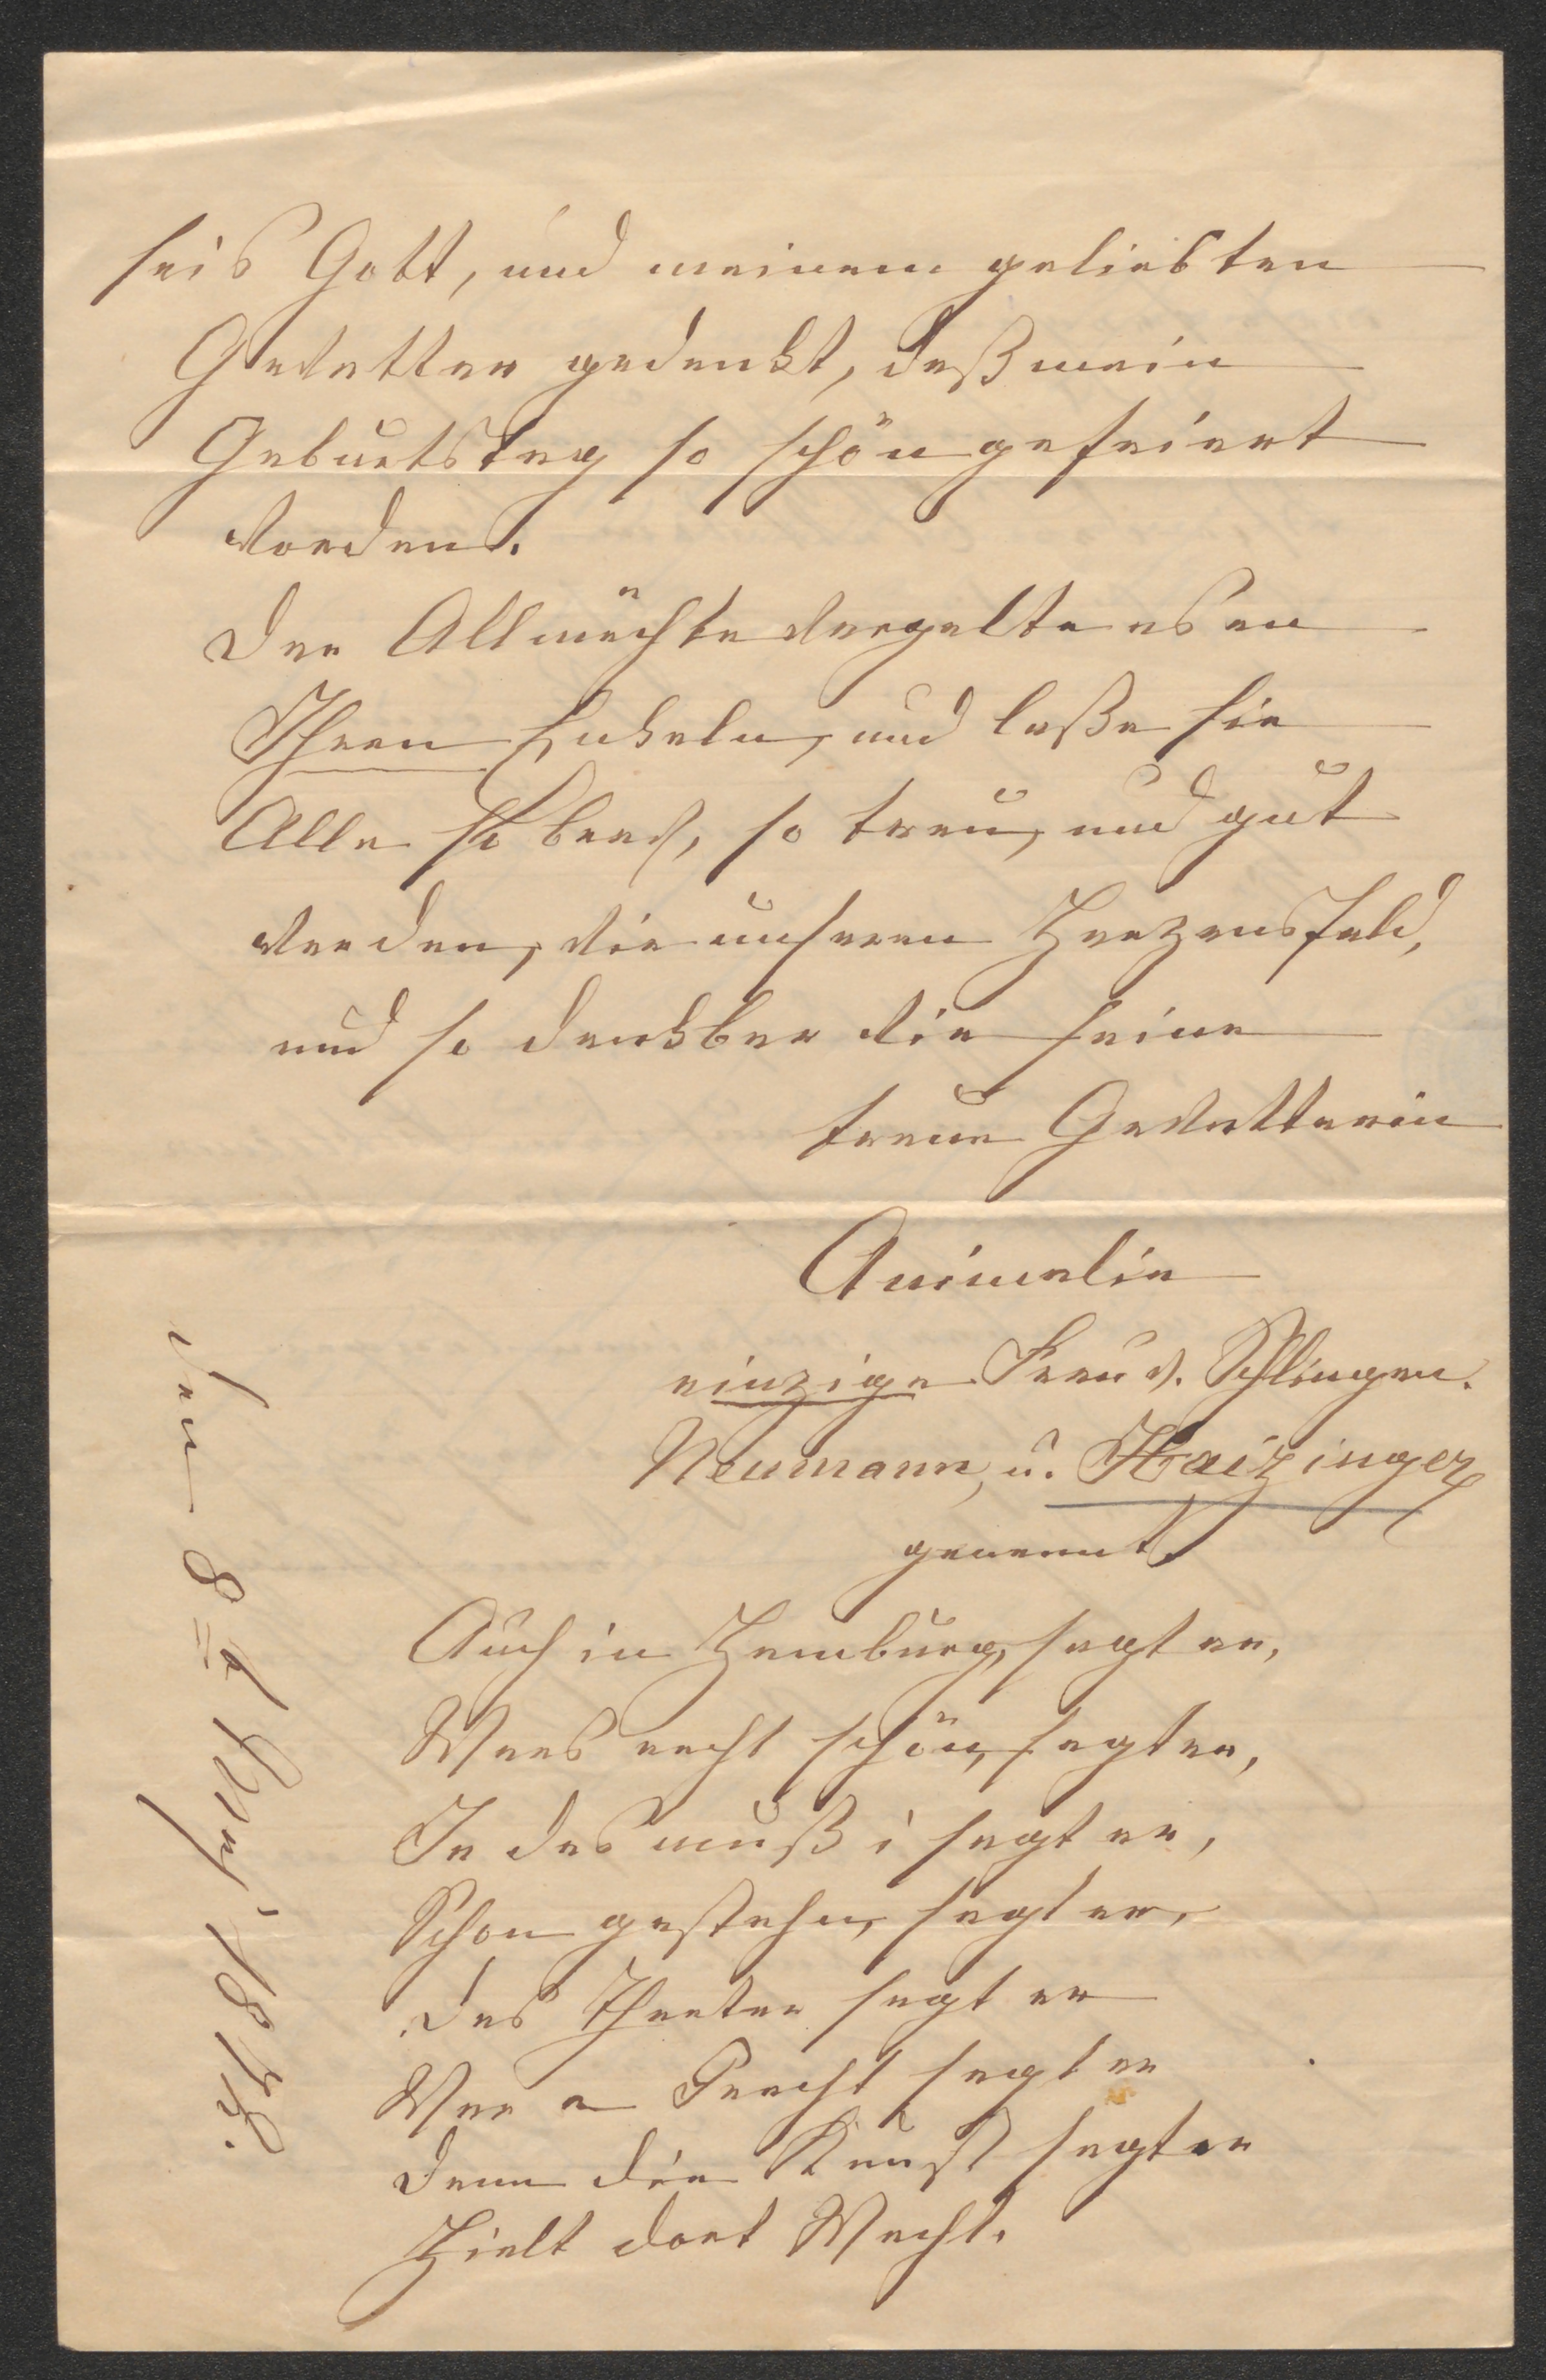 seis Gott, und meinem geliebten
Gevatter gedenkt, daß mein
Geburtstag so schön gefeiert
worden.
Der Allmächte vergelte es an
Ihren Enkeln, und laße sie
Alle so brav, so treu, und gut
werden, wie unseren Herzensheld,
und so dankbar wie seine
treue Gevatterin
Amimelie
einzige Frau v. Schlingen.
Neumann, u. Haizinger
genannt.
Auch in Hamburg, sagt er,
Wars recht schön, sagt er,
Ja das muß i sagt er,
Schon gestehn, sagt er,
das Theater sagt er
War a Pracht sagt er
denn die Kunst sagt er
Hielt dort Wacht.
den 8t May, 187